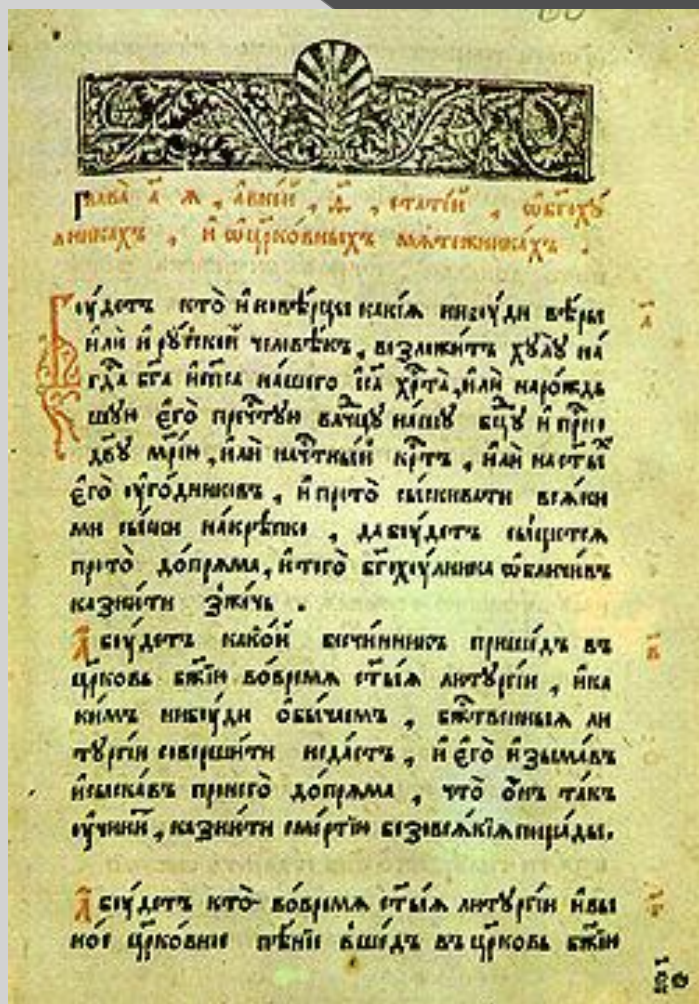 Глава а҃ я, а в ней, д҃, статей, ѡ бг҃оху
лникахъ, и ѡ цр҃ковныхъ мятежникахъ.
Бꙋдетъ кто иновѣрцы какия нибꙋди вѣры
или и рꙋской человѣкъ, возложитъ хꙋлꙋ на
гда бг҃а и сп҃са нашего іс҃а хр҃та, или на рождь
шꙋю его преч҃тꙋю влⷣчцꙋ нашꙋ бц҃ꙋ и присно
дв҃ꙋ мр҃ию, или на ч҃тный кр҃тъ, или на ст҃ыⷯ
его ꙋгодниковъ, и про то сыскивати всяки
ми сыски накрѣпко, да бꙋдетъ сыщется
про то допряма, и того бг҃охꙋлника ѡбличивъ
казнити зжечь.
а҃
А бꙋдетъ какой безчинникъ пришедъ в
цр҃ковь бж҃ию во время ст҃ыя литꙋргии, и ка
кимъ нибꙋди обычаемъ, бж҃твенныя ли
тꙋргии совершити не дастъ, и его изымавъ
и сыскавъ про него допряма, что онъ такъ
ꙋчинитъ, казнити смертию безо всякия пощады.
в҃
А бꙋдетъ кто во время ст҃ыя литꙋргии и в ы
ное цр҃ковное пѣние вшедъ въ цр҃ковь бж҃ию
г҃